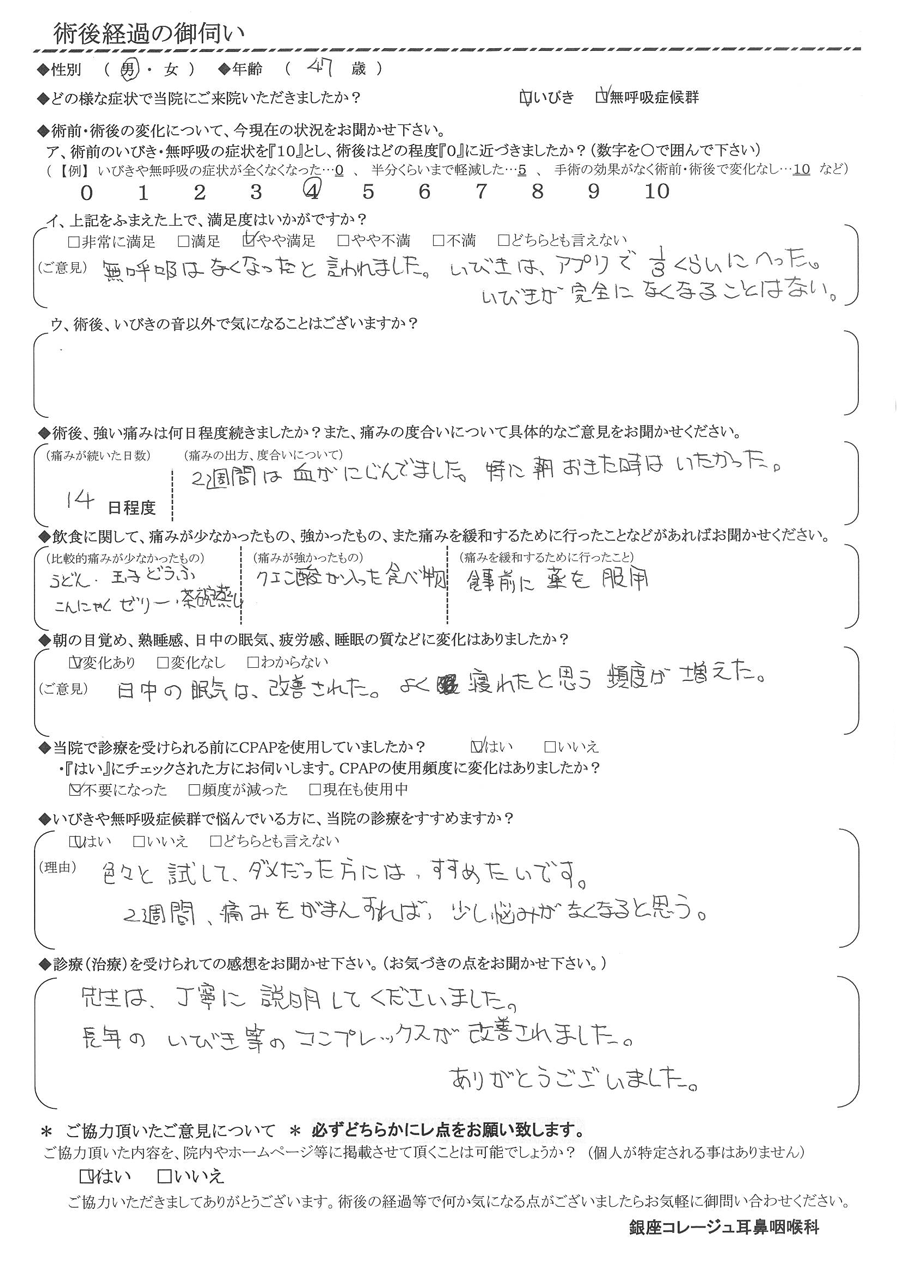 術後経過の御伺い
◆性別 （ 男 ・ 女 ） ◆年齢 （ 47 歳 ）
◆どの様な症状で当院にご来院いただきましたか？ ☑いびき ☑無呼吸症候群
◆術前・術後の変化について、今現在の状況をお聞かせ下さい。
ア、術前のいびき・無呼吸の症状を『10』とし、術後はどの程度『0』に近づきましたか？（数字を〇で囲んで下さい）
（ 【例】 いびきや無呼吸の症状が全くなくなった…0 、 半分くらいまで軽減した…5 、 手術の効果がなく術前・術後で変化なし…10 など）
0 1 2 3 ④ 5 6 7 8 9 10
イ、上記をふまえた上で、満足度はいかがですか？
□非常に満足 □満足 ☑やや満足 □やや不満 □不満 □どちらとも言えない
（ご意見） 無呼吸はなくなったと言われました。いびきは、アプリで1/3くらいにへった。
いびきが完全になくなることはない。
ウ、術後、いびきの音以外で気になることはございますか？
◆術後、強い痛みは何日程度続きましたか？また、痛みの度合いについて具体的なご意見をお聞かせください。
（痛みが続いた日数） （痛みの出方、度合いについて）
2週間は血がにじんでました。特に朝おきた時はいたかった。
14 日程度
◆飲食に関して、痛みが少なかったもの、強かったもの、また痛みを緩和するために行ったことなどがあればお聞かせください。
（比較的痛みが少なかったもの） （痛みが強かったもの） （痛みを緩和するために行ったこと）
うどん・玉子どうふ クエン酸が入った食べ物 食事前に薬を服用
こんにゃくゼリー・茶碗蒸し
◆朝の目覚め、熟睡感、日中の眠気、疲労感、睡眠の質などに変化はありましたか？
☑変化あり □変化なし □わからない
（ご意見） 日中の眠気は、改善された。よく寝れたと思う頻度が増えた。
◆当院で診療を受けられる前にCPAPを使用していましたか？ ☑はい □いいえ
・『はい』にチェックされた方にお伺いします。CPAPの使用頻度に変化はありましたか？
☑不要になった □頻度が減った □現在も使用中
◆いびきや無呼吸症候群で悩んでいる方に、当院の診療をすすめますか？
☑はい □いいえ □どちらとも言えない
（理由） 色々と試して、ダメだった方には、すすめたいです。
2週間、痛みをがまんすれば、少し悩みがなくなると思う。
◆診療（治療）を受けられての感想をお聞かせ下さい。（お気づきの点をお聞かせ下さい。）
先生は、丁寧に説明してくださいました。
長年のいびき等のコンプレックスが改善されました。
ありがとうございました。
＊ ご協力頂いたご意見について ＊ 必ずどちらかにレ点をお願い致します。
ご協力頂いた内容を、院内やホームページ等に掲載させて頂くことは可能でしょうか？ （個人が特定される事はありません）
☑はい □いいえ
ご協力いただきましてありがとうございます。術後の経過等で何か気になる点がございましたらお気軽に御問い合わせください。
銀座コレージュ耳鼻咽喉科